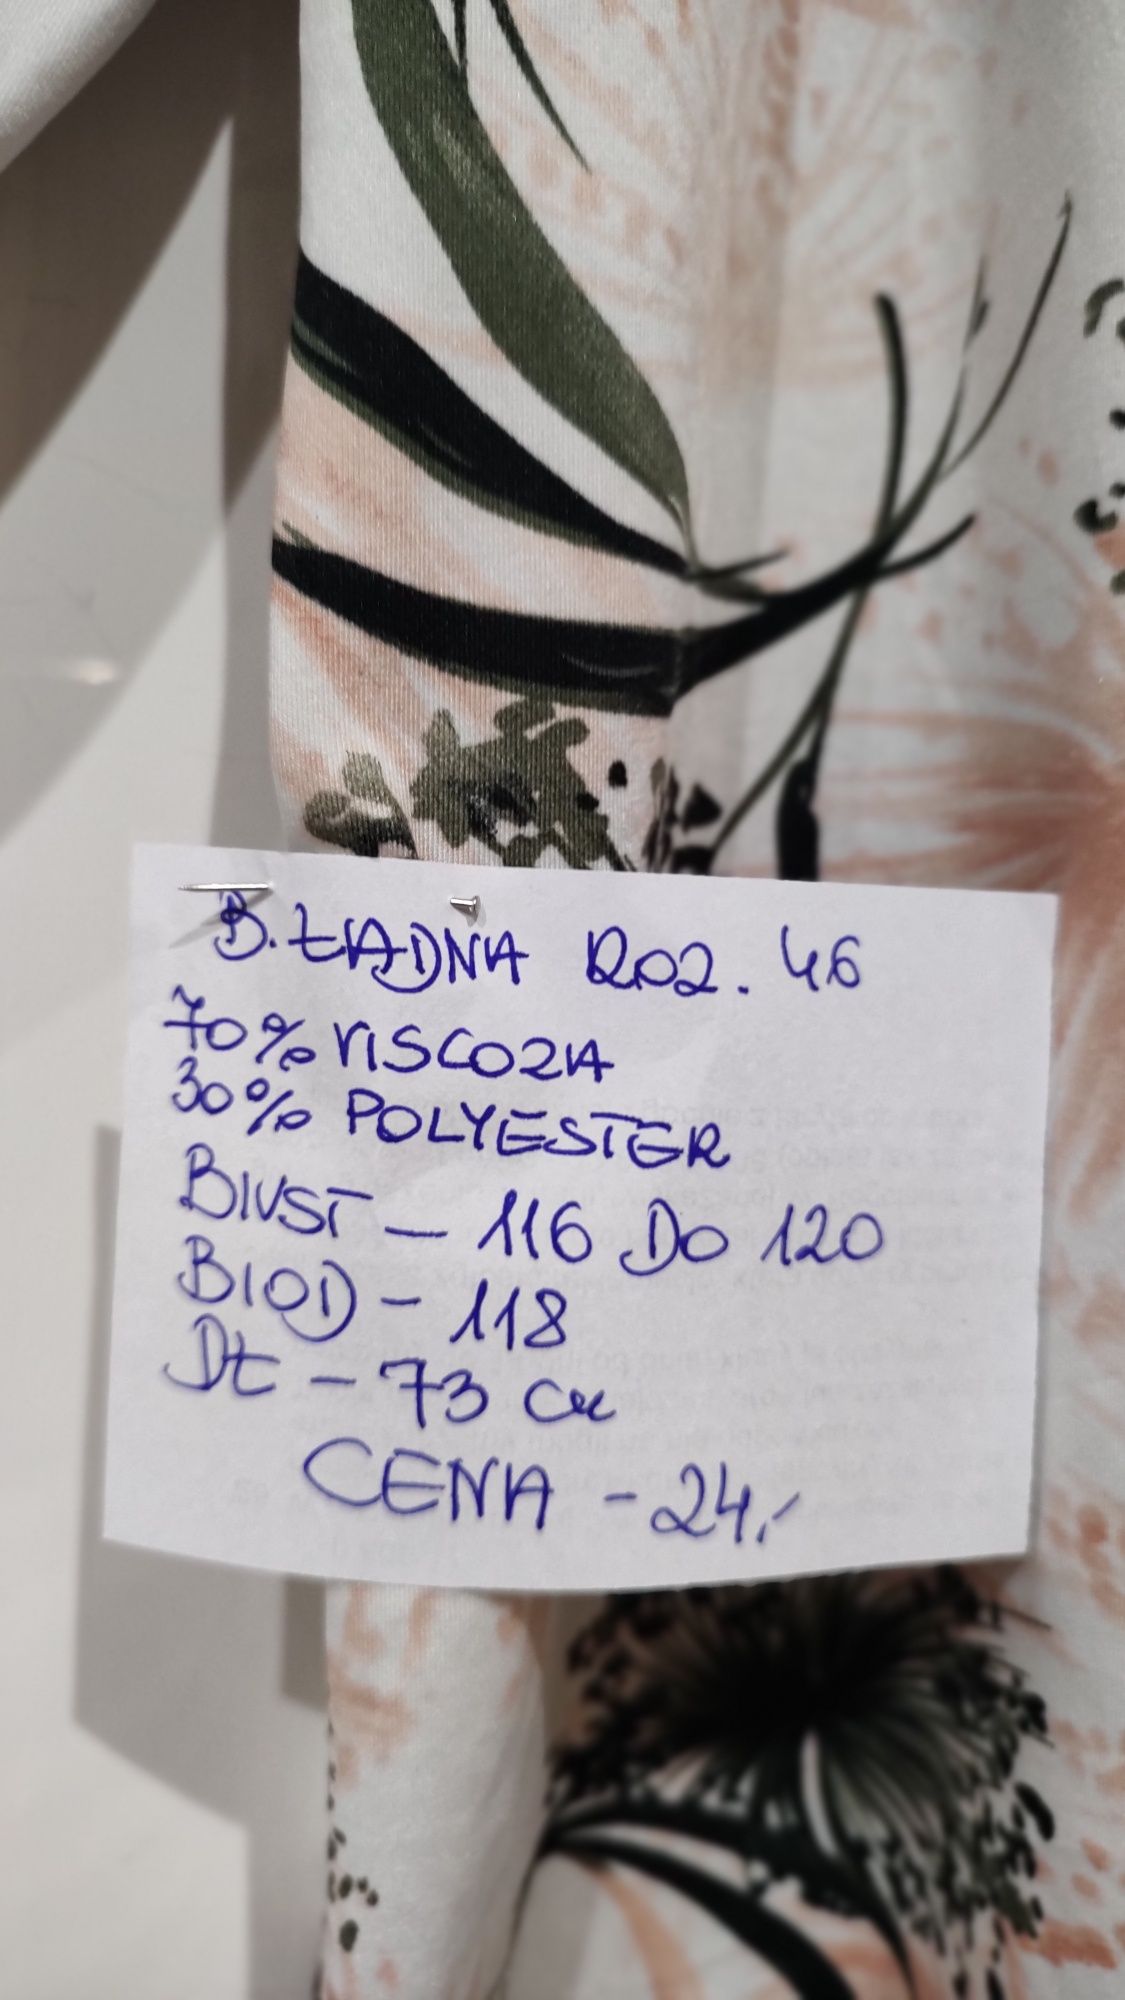 B. ŁADNA ROZ. 46
70% VISCOZA
30% POLYESTER
BIUST – 116 DO 120
BIOD – 118
DŁ – 73 cm
CENA – 24,-